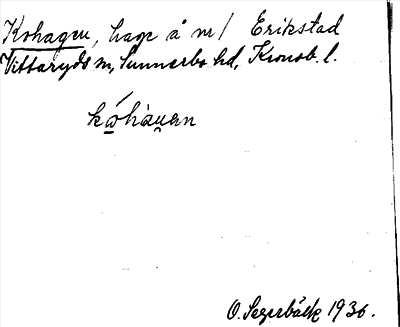 Kohagen, hage å nr 1 Erikstad
Vittaryds sn, Sunnerbo hd, Kronob. l.
kóhàu̯en
O. Segerbäck 1936.